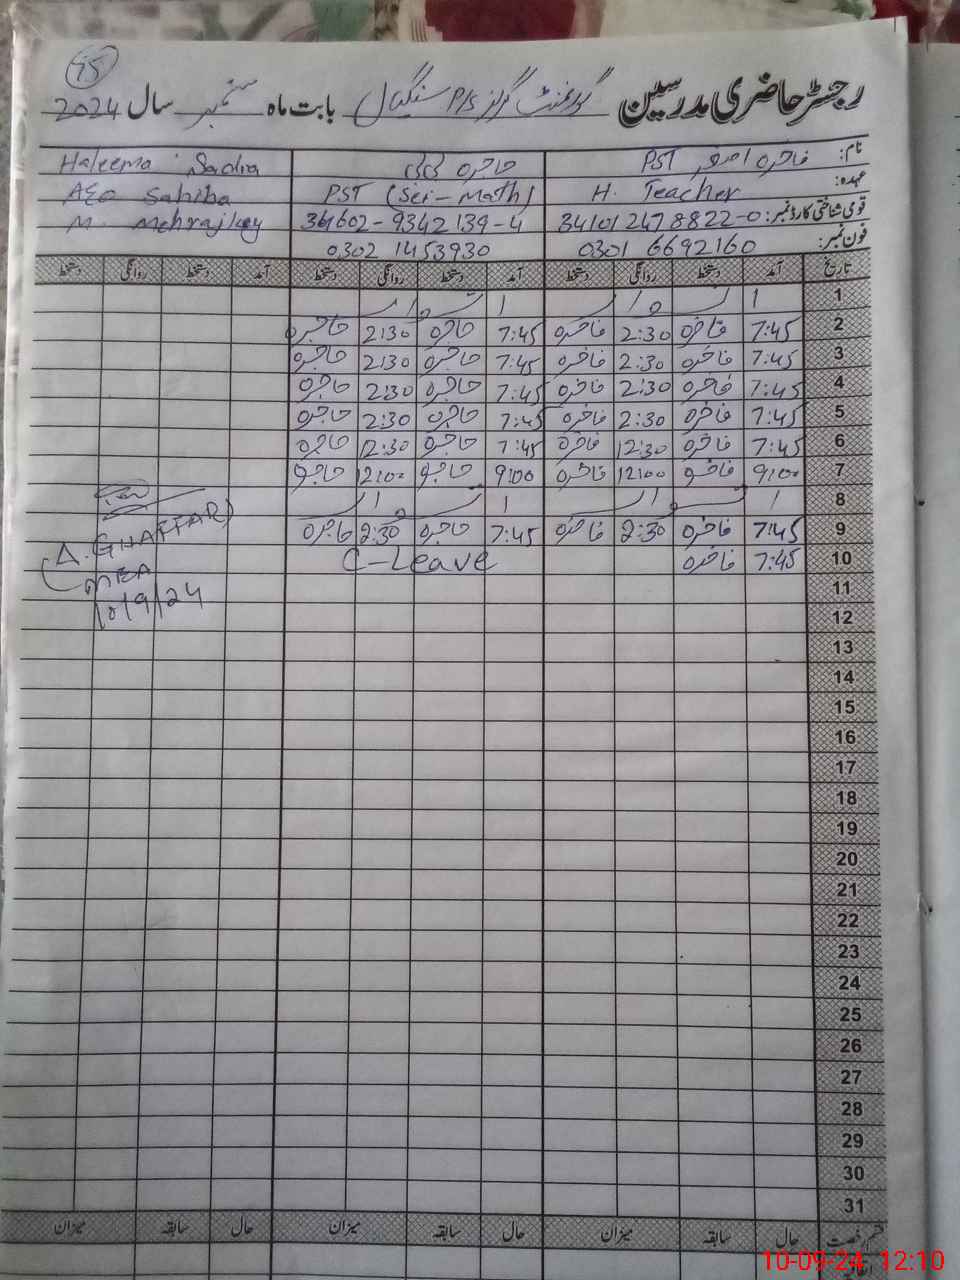 95
رجسٹر حاضری مدرسین گورنمنٹ گرلز P/S سنگیال بابت ماہ ستمبر سال 2024
نام: فاخرہ اصغر PST حاجرہ Haleema Sadia
عہدہ: H. Teacher PST (Sci-Math) AEO Sahiba
قومی شناختی کارڈ نمبر: 34101 2478822-0 34602-9342139-4 M. Mehrajkey
فون نمبر: 0301 6692160 0302 1453930
تاریخ آمد دستخط روانگی دستخط آمد دستخط روانگی دستخط آمد دستخط روانگی دستخط
1 ا تـ و ا ر ا تـ و ا ر
2 7:45 فاخرہ 2:30 فاخرہ 7:45 حاجرہ 2:30 حاجرہ
3 7:45 فاخرہ 2:30 فاخرہ 7:45 حاجرہ 2:30 حاجرہ
4 7:45 فاخرہ 2:30 فاخرہ 7:45 حاجرہ 2:30 حاجرہ
5 7:45 فاخرہ 2:30 فاخرہ 7:45 حاجرہ 2:30 حاجرہ
6 7:45 فاخرہ 12:30 فاخرہ 7:45 حاجرہ 12:30 حاجرہ
7 9:00 فاخرہ 12:00 فاخرہ 9:00 حاجرہ 12:00 حاجرہ
8 ا تـ و ا ر ا تـ و ا ر
9 7:45 فاخرہ 2:30 فاخرہ 7:45 حاجرہ 2:30 حاجرہ
10 7:45 فاخرہ C-Leave
(A. GHAFFAR)
MEA
10/9/24
11
12
13
14
15
16
17
18
19
20
21
22
23
24
25
26
27
28
29
30
31
قسم رخصت حال سابقہ میزان حال سابقہ میزان حال سابقہ میزان
10-09-24 12:10